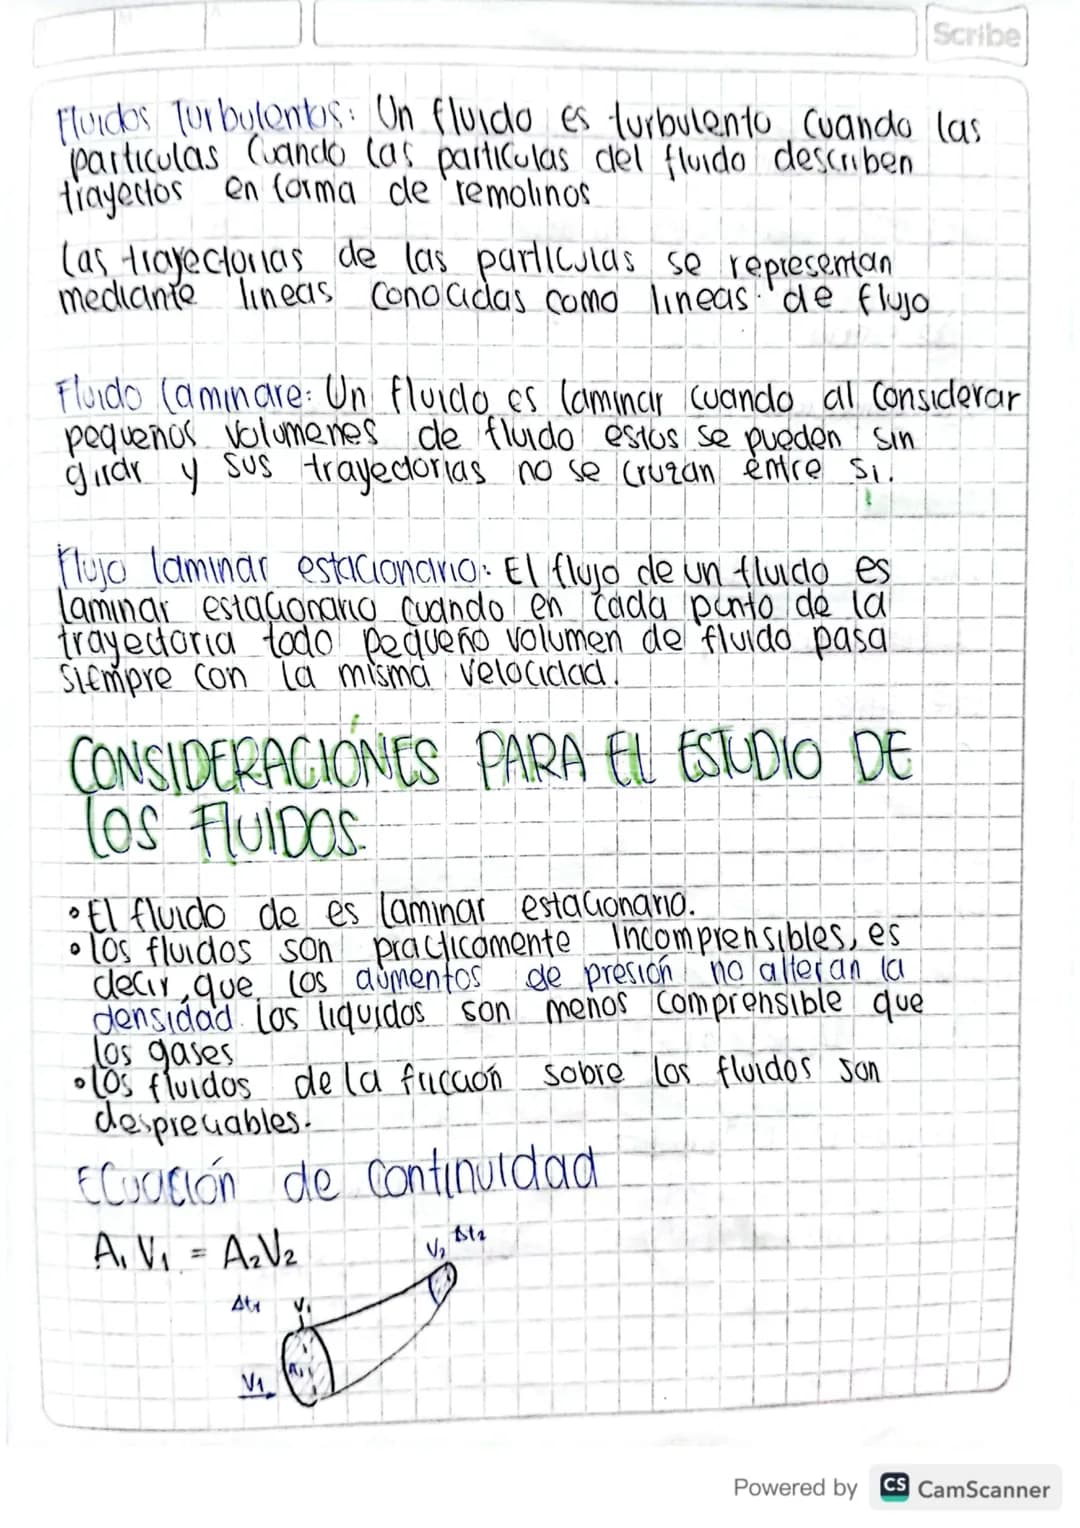 Scribe
Fluidos Turbulentos: Un fluido es turbulento cuando las
particulas Cuando las particulas del fluido describen
trayectos en forma de remolinos
Las trayectorias de las particulas se representan
mediante lineas conocidas como lineas de flujo
Fluido laminare: Un fluido es laminar cuando al considerar
pequeños volumenes de fluido estos se pueden sin
girar y sus trayectorias no se cruzan entre si.
Flujo laminar estacionario: El flujo de un fluido es
laminar estacionario cuando en cada punto de la
trayectoria todo pequeño volumen de fluido pasa
siempre con la misma velocidad.
CONSIDERACIÓNES PARA EL ESTUDIO DE
LOS FLUIDOS.
• El fluido de es laminar estacionario.
• los fluidos son practicamente Incomprensibles, es
decir, que los aumentos de presión no alteran la
densidad. Los liquidos son menos comprensible que
los gases
• los fluidos de la fricción sobre los fluidos son
despreciables.
Ecuación de continuidad
A₁ V₁ = A₂V₂
V₂ Δt₂
Δt₁ V₁
A₁
V₁
Powered by CS CamScanner